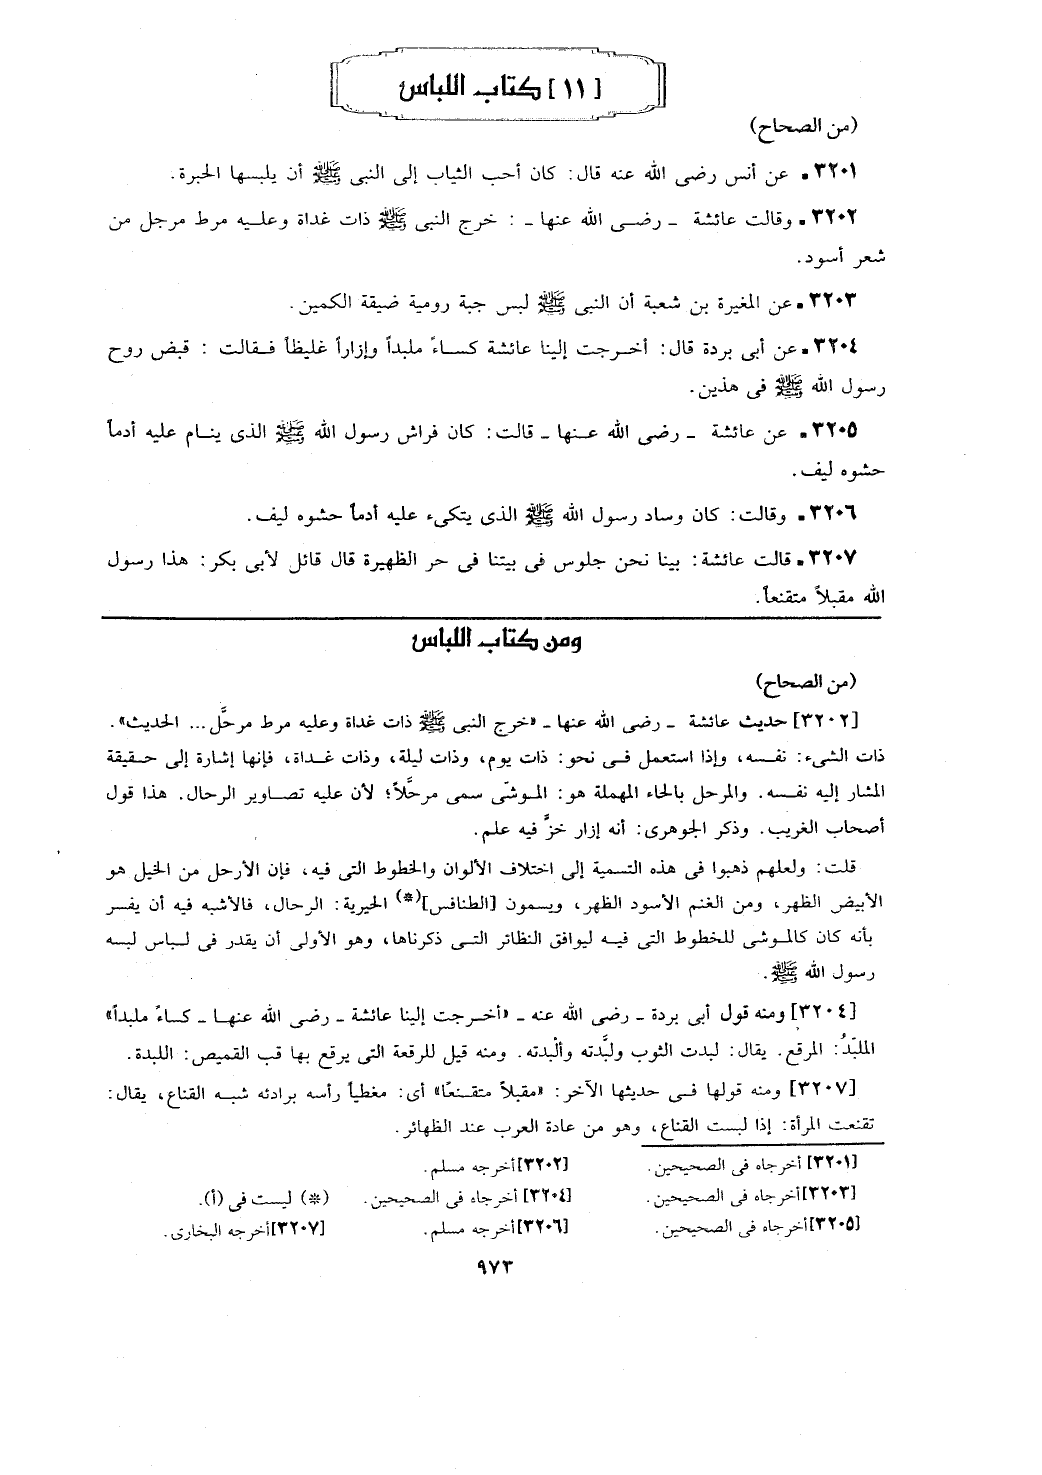 [١١] كتاب اللباس
(من الصحاح)
٣٢٠١. عن أنس رضى الله عنه قال: كان أحب الثياب إلى النبى ﷺ أن يلبسها الحبرة.
٣٢٠٢. وقالت عائشة ـ رضى الله عنها ـ : خرج النبى ﷺ ذات غداة وعليه مرط مرجل من
شعر أسود.
٣٢٠٣. عن المغيرة بن شعبة أن النبى ﷺ لبس جبة رومية ضيقة الكمين.
٣٢٠٤. عن أبى بردة قال: أخرجت إلينا عائشة كساءً ملبداً وإزاراً غليظاً فقالت : قبض روح
رسول الله ﷺ فى هذين.
٣٢٠٥. عن عائشة ـ رضى الله عنها ـ قالت: كان فراش رسول الله ﷺ الذى ينام عليه أدماً
حشوه ليف.
٣٢٠٦. وقالت: كان وساد رسول الله ﷺ الذى يتكىء عليه أدماً حشوه ليف.
٣٢٠٧. قالت عائشة: بينا نحن جلوس فى بيتنا فى حر الظهيرة قال قائل لأبى بكر: هذا رسول
الله مقبلاً متقنعاً.
ومن كتاب اللباس
(من الصحاح)
[٣٢٠٢] حديث عائشة ـ رضى الله عنها ـ «خرج النبى ﷺ ذات غداة وعليه مرط مرحَّل... الحديث».
ذات الشىء: نفسه، وإذا استعمل فى نحو: ذات يوم، وذات ليلة، وذات غداة، فإنها إشارة إلى حقيقة
المشار إليه نفسه. والمرحل بالحاء المهملة هو: الموشّى سمى مرحَّلاً؛ لأن عليه تصاوير الرحال. هذا قول
أصحاب الغريب. وذكر الجوهرى: أنه إزار خزَّ فيه علم.
قلت: ولعلهم ذهبوا فى هذه التسمية إلى اختلاف الألوان والخطوط التى فيه، فإن الأرحل من الخيل هو
الأبيض الظهر، ومن الغنم الأسود الظهر، ويسمون [الطنافس](*) الحيرية: الرحال، فالأشبه فيه أن يفسر
بأنه كان كالموشى للخطوط التى فيه ليوافق النظائر التى ذكرناها، وهو الأولى أن يقدر فى لباس لبسه
رسول الله ﷺ.
[٣٢٠٤] ومنه قول أبى بردة ـ رضى الله عنه ـ «أخرجت إلينا عائشة ـ رضى الله عنها ـ كساءً ملبداً»
الملبّدُ: المرقع. يقال: لبدت الثوب ولبَّدته وألْبدته. ومنه قيل للرقعة التى يرقع بها قب القميص: اللبدة.
[٣٢٠٧] ومنه قولها فى حديثها الآخر: «مقبلاً متقنعًا» أى: مغطياً رأسه بردائه شبه القناع، يقال:
تقنعت المرأة: إذا لبست القناع، وهو من عادة العرب عند الظهائر.
[٣٢٠١] أخرجاه فى الصحيحين. [٣٢٠٢]أخرجه مسلم.
[٣٢٠٣]أخرجاه فى الصحيحين. [٣٢٠٤] أخرجاه فى الصحيحين. (*) ليست فى (أ).
[٣٢٠٥]أخرجاه فى الصحيحين. [٣٢٠٦]أخرجه مسلم. [٣٢٠٧]أخرجه البخارى.
٩٧٣